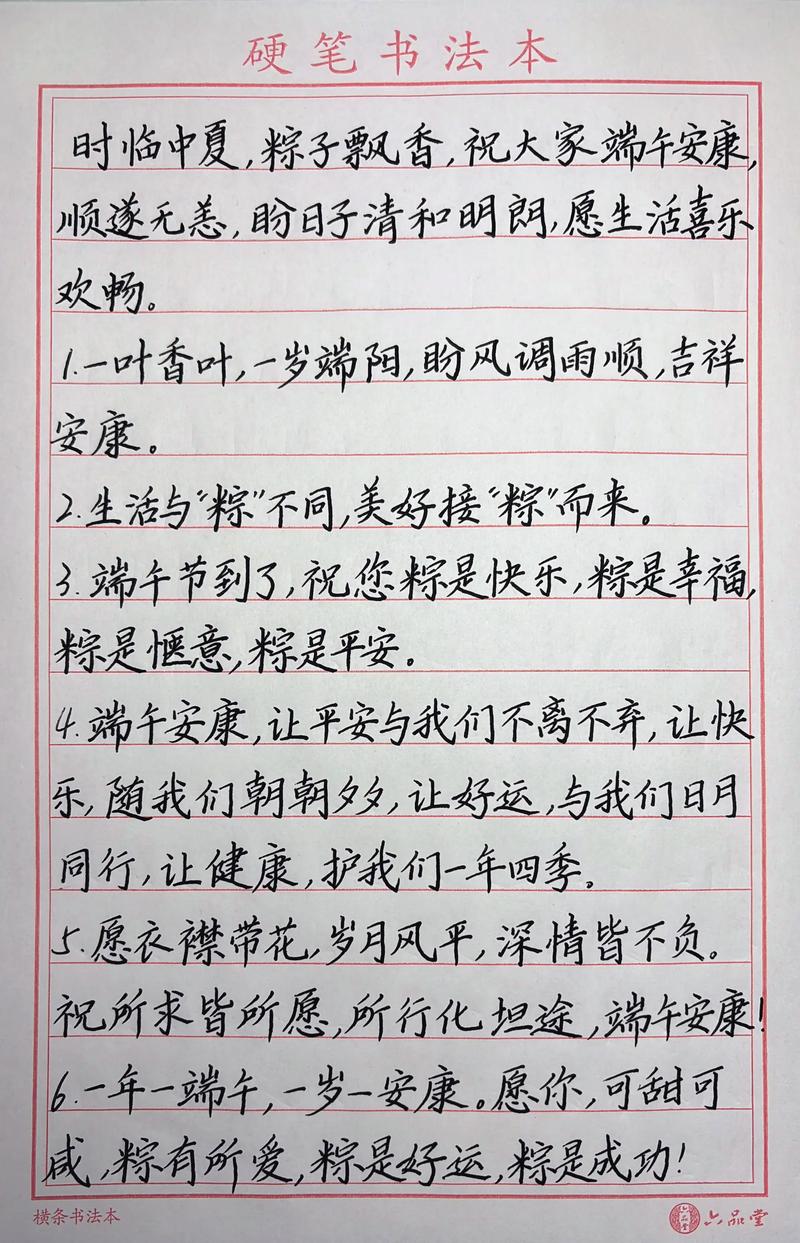 硬笔书法本
时临中夏,粽子飘香,祝大家端午安康,
顺遂无恙,盼日子清和明朗,愿生活喜乐
欢畅。
1.一叶香叶,一岁端阳,盼风调雨顺,吉祥
安康。
2.生活与“粽”不同,美好接“粽”而来。
3.端午节到了,祝您粽是快乐,粽是幸福,
粽是惬意,粽是平安。
4.端午安康,让平安与我们不离不弃,让快
乐,随我们朝朝夕夕,让好运,与我们日月
同行,让健康,护我们一年四季。
5.愿衣襟带花,岁月风平,深情皆不负。
祝所求皆所愿,所行化坦途,端午安康!
6.一年一端午,一岁一安康。愿你,可甜可
咸,粽有所爱,粽是好运,粽是成功!
横条书法本
六品堂